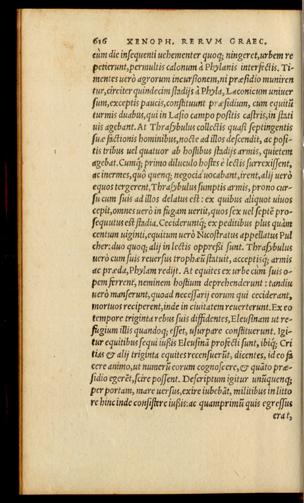 616 XENOPH. RERVM GRAEC.
eùm die insequenti uehementer quoq; ningeret, urbem re
petierunt, permultis calonum à Phylanis interfectis. Ti-
mentes uerò agrorum incursionem, ni præsidio muniren
tur, circiter quindecim stadijs à Phyla, Laconicum uniuer
sum, exceptis paucis, constituunt præsidium, cum equitũ
turmis duabus, qui in Lasio campo positis castris, in stati
uis agebant. At Thrasybulus collectis quasi septingentis
suæ factionis hominibus, nocte ad illos descendit, ac posi-
tis tribus uel quatuor ab hostibus stadijs armis, quietem
agebat. Cumq; primo diluculo hostes è lectis surrexissent,
ac inermes, quò quenq; negocia uocabant, irent, alij uerò
equos tergerent, Thrasybulus sumptis armis, prono cur-
su cum suis ad illos delatus est: ex quibus aliquot uiuos
cepit, omnes uerò in fugam uertit, quos sex uel septẽ pro-
sequutus est stadia. Ceciderunt́q; ex peditibus plus quàm
centum uiginti, equitum uerò Nicostratus appellatus Pul
cher: duo quoq; alij in lectis oppreßi sunt. Thrasybulus
uerò cum suis reuersus trophæũ statuit, acceptisq́; armis
ac præda, Phylam redijt. At equites ex urbe cùm suis o-
pem ferrent, neminem hostium deprehenderunt: tandiu
uerò manserunt, quoad necessarij eorum qui ceciderant,
mortuos reciperent, inde in ciuitatem reuerterunt. Ex eo
tempore triginta rebus suis diffidentes, Eleusinam ut re-
fugium illis quandoq; esset, usurpare constituerunt. Igi-
tur equitibus sequi iußis Eleusinã profecti sunt, ibiq́; Cri
tias & alij triginta equites recensuerũt, dicentes, id eo fa
cere animo, ut numerũ eorum cognoscere, & quãto præ-
sidio egerẽt, scire possent. Descriptum igitur unũquenq;
per portam, mare uersus, exire iubebãt, militibus in litto
re hinc inde consistere iußis: ac quamprimũ quis egressus
erat,